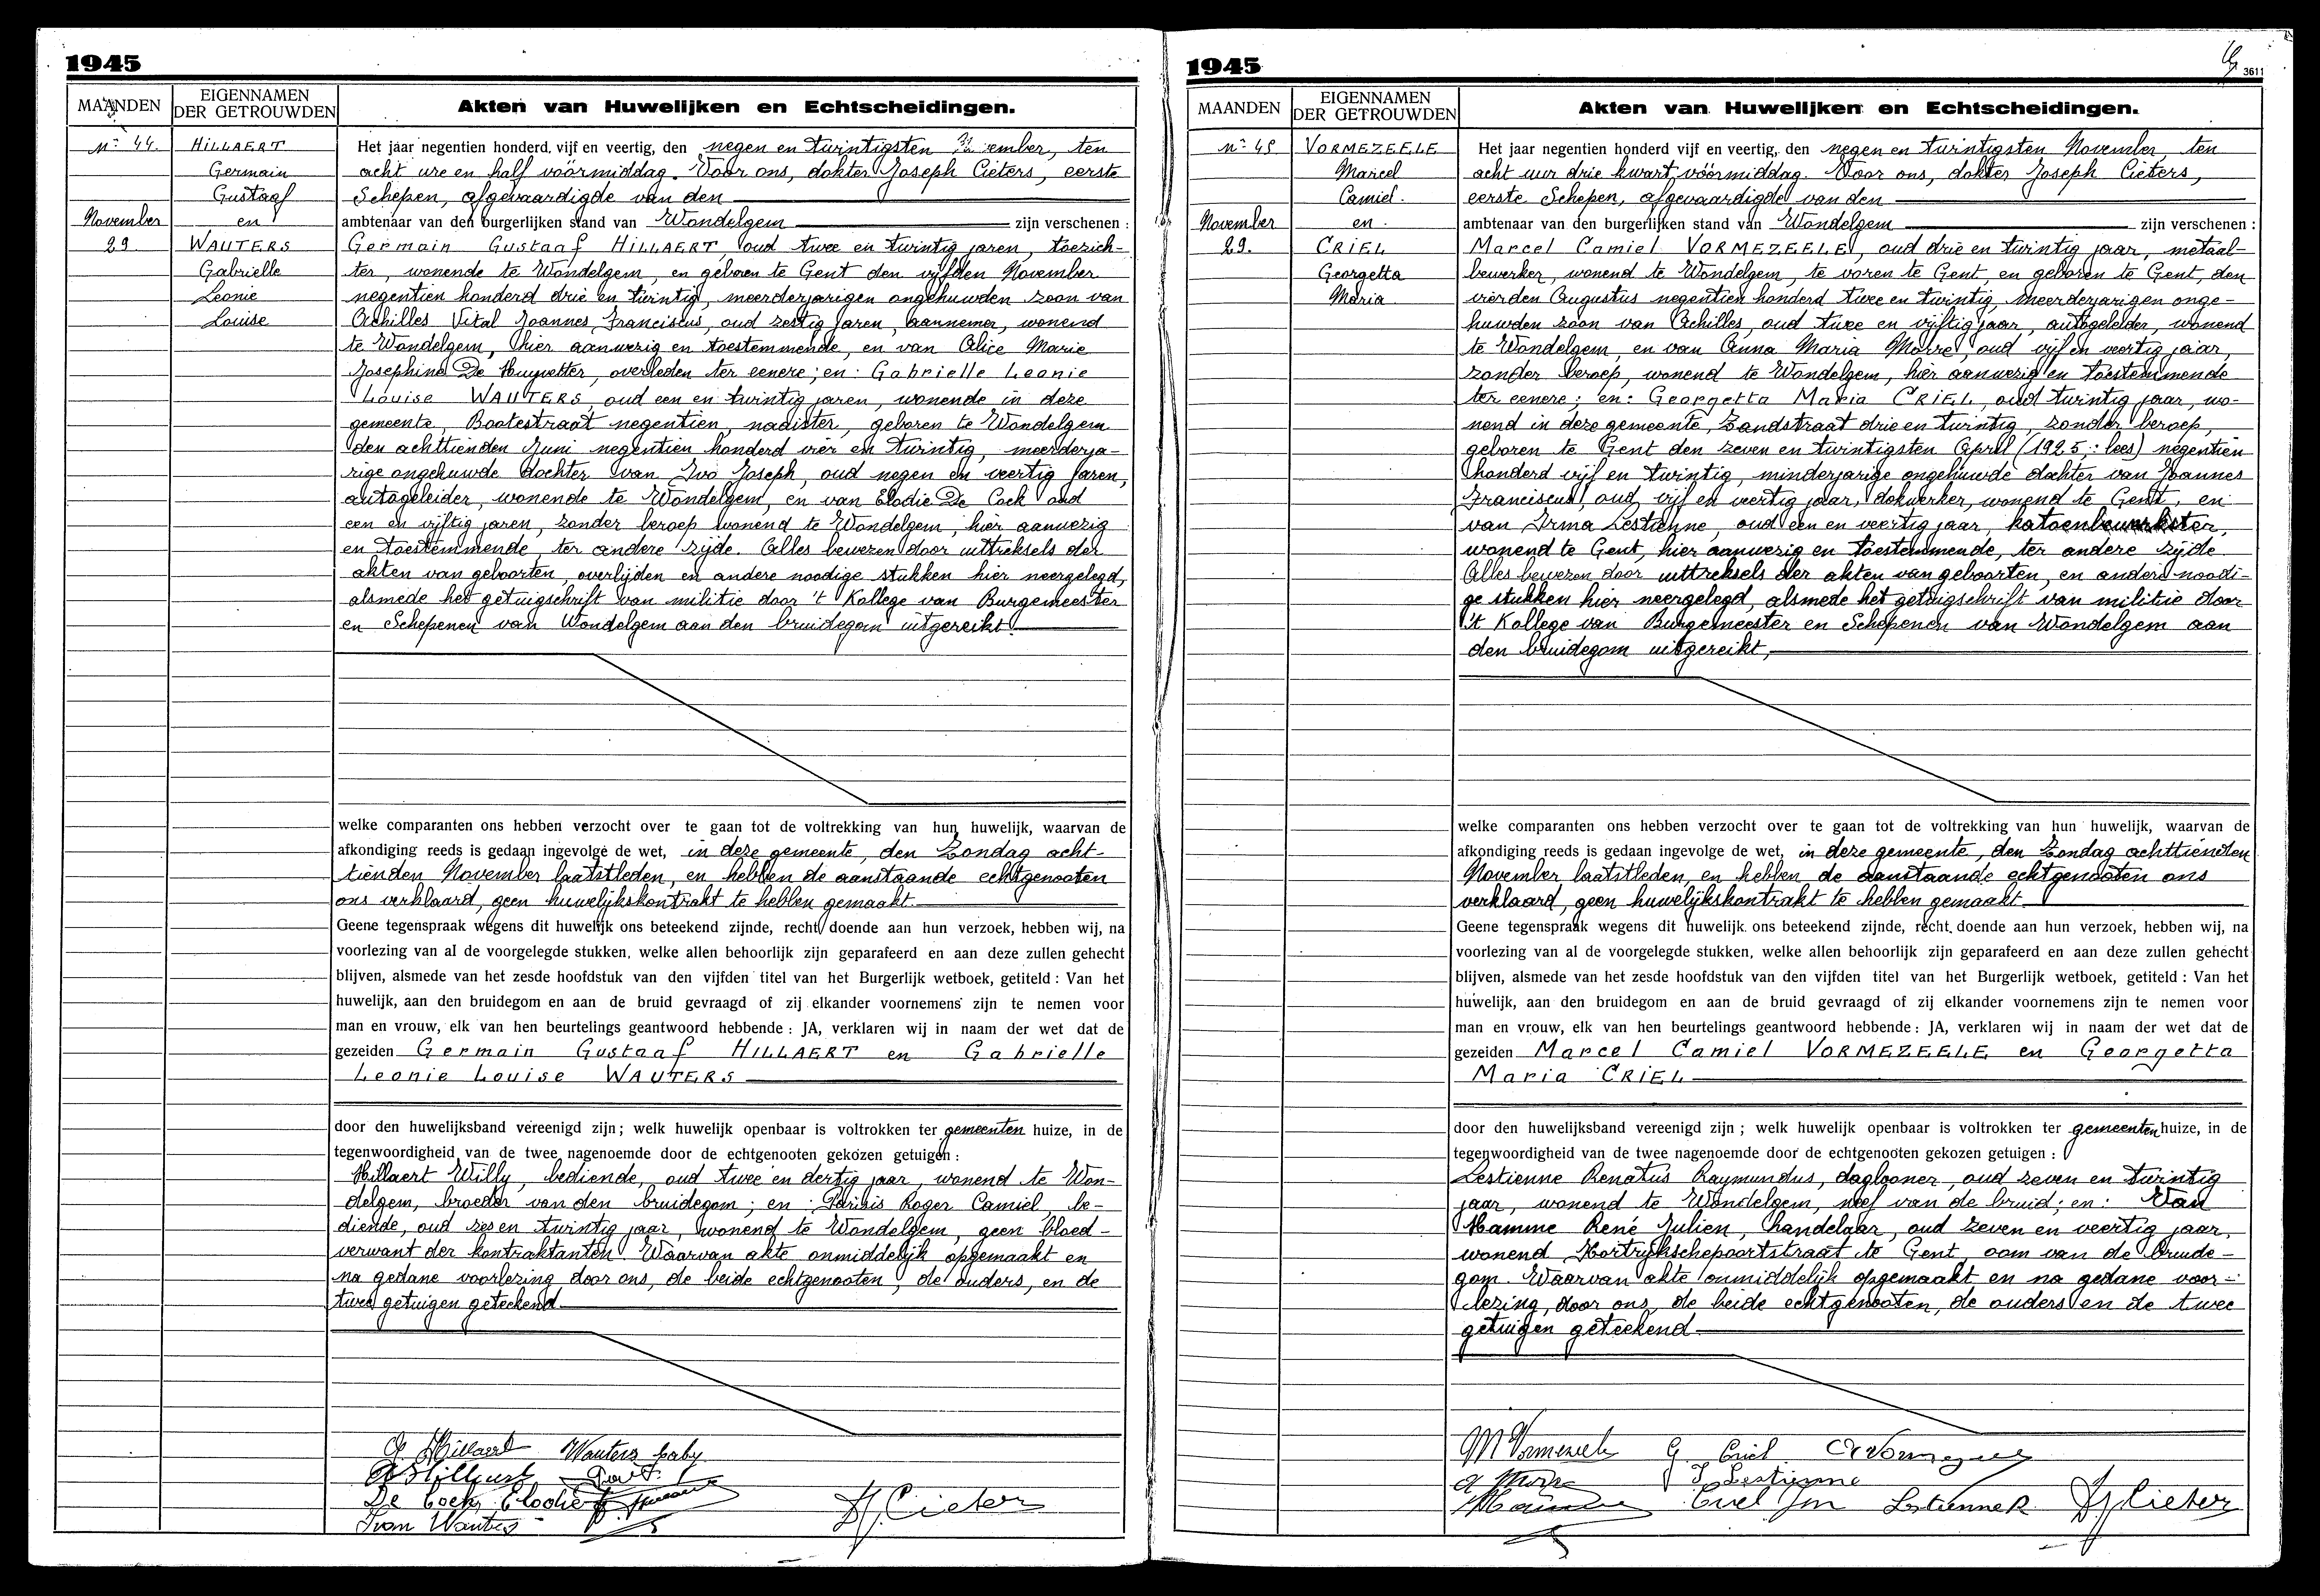 1945
MAANDEN
EIGENNAMEN
DER GETROUWDEN
Akten van Huwelijken en Echtscheidingen.
Nr 44.
November
29.
HILLAERT
Germain
Gustaaf
en
WAUTERS
Gabrielle
Leonie
Louise
Het jaar negentien honderd, vijf en veertig, den negen en twintigsten November, ten
acht ure en half vóórmiddag. Voor ons, dokter Joseph Cieters, eerste
Schepen, afgevaardigde van den
ambtenaar van den burgerlijken stand van Wondelgem zijn verschenen :
Germain Gustaaf HILLAERT, oud twee en twintig jaren, toezich-
ter, wonende te Wondelgem, en geboren te Gent den vijfden November
negentien honderd drie en twintig, meerderjarigen ongehuwden zoon van
Achilles Vital Joannes Franciscus, oud zestig jaren, aannemer, wonend
te Wondelgem, hier aanwezig en toestemmende, en van Alice Marie
Josephina De Huyvetter, overleden ter eenere; en: Gabrielle Leonie
Louise WAUTERS, oud een en twintig jaren, wonende in deze
gemeente, Bootestraat negentien, naaister, geboren te Wondelgem
den achttienden Juni negentien honderd vier en twintig, meerderja-
rige ongehuwde dochter van Ivo Joseph, oud negen en veertig jaren,
autogeleider, wonende te Wondelgem, en van Elodie De Cock oud
een en vijftig jaren, zonder beroep wonend te Wondelgem, hier aanwezig
en toestemmende, ter andere zijde. Alles bewezen door uittreksels der
akten van geboorten, overlijden en andere noodige stukken hier neergelegd,
alsmede het getuigschrift van militie door 't Kollege van Burgemeester
en Schepenen van Wondelgem aan den bruidegom uitgereikt.
welke comparanten ons hebben verzocht over te gaan tot de voltrekking van hun huwelijk, waarvan de
afkondiging reeds is gedaan ingevolge de wet, in deze gemeente, den Zondag acht-
tienden November laatstleden, en hebben de aanstaande echtgenooten
ons verklaard, geen huwelijkskontrakt te hebben gemaakt.
Geene tegenspraak wegens dit huwelijk ons beteekend zijnde, recht doende aan hun verzoek, hebben wij, na
voorlezing van al de voorgelegde stukken, welke allen behoorlijk zijn geparafeerd en aan deze zullen gehecht
blijven, alsmede van het zesde hoofdstuk van den vijfden titel van het Burgerlijk wetboek, getiteld : Van het
huwelijk, aan den bruidegom en aan de bruid gevraagd of zij elkander voornemens zijn te nemen voor
man en vrouw, elk van hen beurtelings geantwoord hebbende : JA, verklaren wij in naam der wet dat de
gezeiden Germain Gustaaf HILLAERT en Gabrielle
Leonie Louise WAUTERS
door den huwelijksband vereenigd zijn ; welk huwelijk openbaar is voltrokken ter gemeenten huize, in de
tegenwoordigheid van de twee nagenoemde door de echtgenooten gekozen getuigen :
Hillaert Willy, bediende, oud twee en dertig jaar, wonend te Won-
delgem, broeder van den bruidegom; en: Roger Camiel, be-
diende, oud zes en twintig jaar, wonend te Wondelgem, geen bloed-
verwant der kontraktanten. Waarvan akte onmiddelijk opgemaakt en
na gedane voorlezing door ons, de beide echtgenooten, de ouders, en de
twee getuigen geteekend.
G Hillaert Wauters Gaby
A Hillaert
De Cock Elodie
Ivon Wauters
J. Cieters
1945
3611
MAANDEN
EIGENNAMEN
DER GETROUWDEN
Akten van Huwelijken en Echtscheidingen.
Nr 45
November
29.
VORMEZEELE
Marcel
Camiel.
en
CRIEL
Georgetta
Maria
Het jaar negentien honderd vijf en veertig, den negen en twintigsten November, ten
acht uur drie kwart vóórmiddag. Voor ons, dokter Joseph Cieters,
eerste Schepen, afgevaardigde van den
ambtenaar van den burgerlijken stand van Wondelgem zijn verschenen :
Marcel Camiel VORMEZEELE, oud drie en twintig jaar, metaal-
bewerker, wonend te Wondelgem, te voren te Gent, en geboren te Gent, den
vierden Augustus negentien honderd twee en twintig, meerderjarigen onge-
huwden zoon van Achilles, oud twee en vijftig jaar, autogeleider, wonend
te Wondelgem, en van Anna Maria Morre, oud vijf en veertig jaar,
zonder beroep, wonend te Wondelgem, hier aanwezig en toestemmende
ter eenere; en: Georgetta Maria CRIEL, oud twintig jaar, wo-
nend in deze gemeente, Zandstraat drie en twintig, zonder beroep,
geboren te Gent den zeven en twintigsten April (1925,: lees) negentien
honderd vijf en twintig, minderjarige ongehuwde dochter van Joannes
Franciscus, oud vijf en veertig jaar, dokwerker, wonend te Gent, en
van Irma Lestienne, oud een en veertig jaar, katoenbewerkster,
wonend te Gent, hier aanwezig en toestemmende, ter andere zijde.
Alles bewezen door uittreksels der akten van geboorten, en andere noodi-
ge stukken hier neergelegd, alsmede het getuigschrift van militie door
't Kollege van Burgemeester en Schepenen van Wondelgem aan
den bruidegom uitgereikt,
welke comparanten ons hebben verzocht over te gaan tot de voltrekking van hun huwelijk, waarvan de
afkondiging reeds is gedaan ingevolge de wet, in deze gemeente, den Zondag achttienden
November laatstleden, en hebben de aanstaande echtgenooten ons
verklaard, geen huwelijkskontrakt te hebben gemaakt
Geene tegenspraak wegens dit huwelijk ons beteekend zijnde, recht doende aan hun verzoek, hebben wij, na
voorlezing van al de voorgelegde stukken, welke allen behoorlijk zijn geparafeerd en aan deze zullen gehecht
blijven, alsmede van het zesde hoofdstuk van den vijfden titel van het Burgerlijk wetboek, getiteld : Van het
huwelijk, aan den bruidegom en aan de bruid gevraagd of zij elkander voornemens zijn te nemen voor
man en vrouw, elk van hen beurtelings geantwoord hebbende : JA, verklaren wij in naam der wet dat de
gezeiden Marcel Camiel VORMEZEELE en Georgetta
Maria CRIEL
door den huwelijksband vereenigd zijn ; welk huwelijk openbaar is voltrokken ter gemeenten huize, in de
tegenwoordigheid van de twee nagenoemde door de echtgenooten gekozen getuigen :
Lestienne Renatus Raymundus, daglooner, oud zeven en twintig
jaar, wonend te Wondelgem, neef van de bruid; en: Van
Hamme René Julien, handelaar, oud zeven en veertig jaar,
wonend Kortrijkschepoortstraat te Gent, oom van de bruide-
gom. Waarvan akte onmiddelijk opgemaakt en na gedane voor-
lezing, door ons, de beide echtgenooten, de ouders en de twee
getuigen geteekend
M Vormezeele G. Criel
I. Lestienne
Criel Jon Lestienne R. J. Cieters